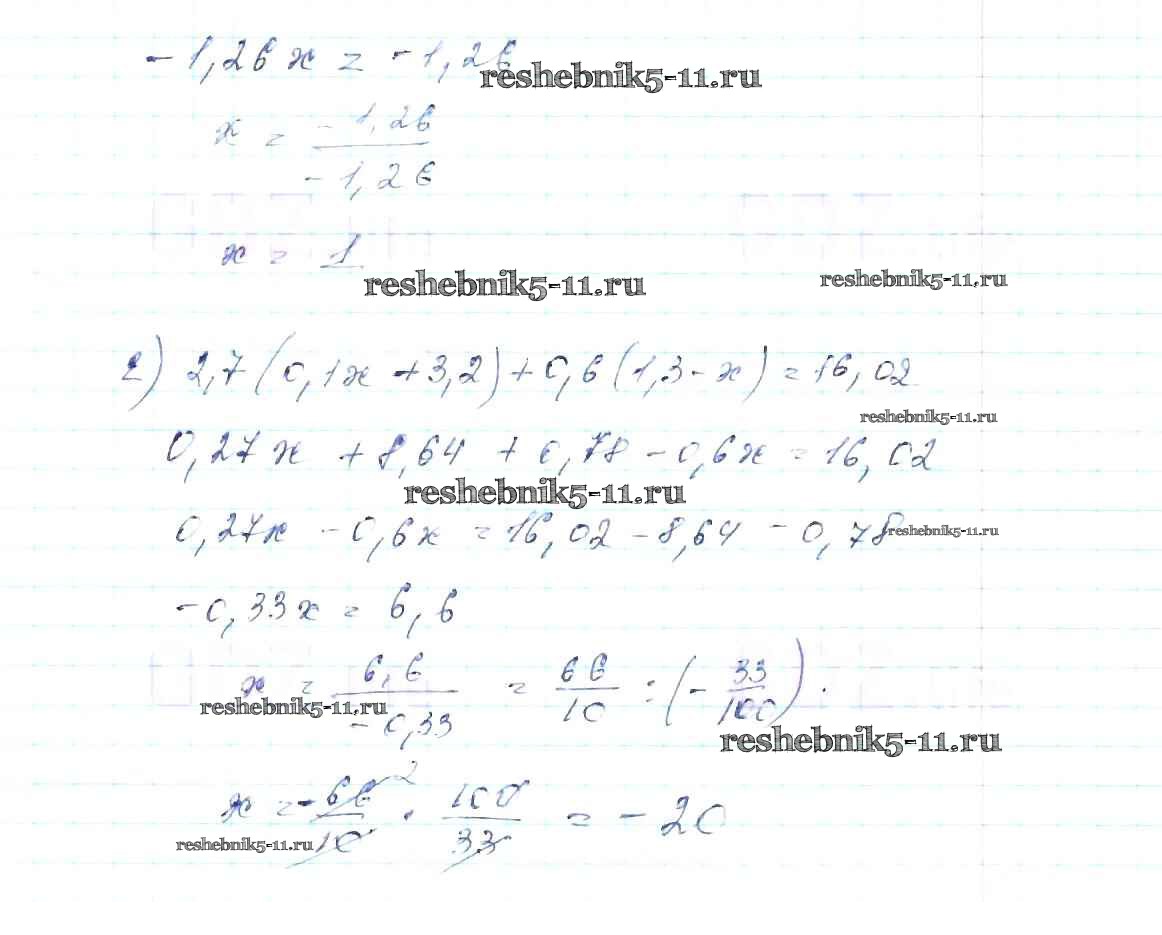 -1,26x = -1,26
reshebnik5-11.ru
x = -1,26 / -1,26
x = 1
reshebnik5-11.ru reshebnik5-11.ru
2) 2,7(0,1x + 3,2) + 0,6(1,3 - x) = 16,02
reshebnik5-11.ru
0,27x + 8,64 + 0,78 - 0,6x = 16,02
reshebnik5-11.ru
0,27x - 0,6x = 16,02 - 8,64 - 0,78
reshebnik5-11.ru
-0,33x = 6,6
x = 6,6 / -0,33 = 66/10 : (-33/100).
reshebnik5-11.ru
reshebnik5-11.ru
x = -66/10 2 · 100/33 = -20
reshebnik5-11.ru